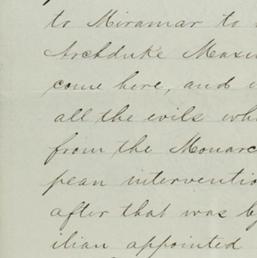 to Miramar to
Archduke Maxi
come here, and
all the evils wh
from the Monarc
pean interventio
after that was b
ilian appointed